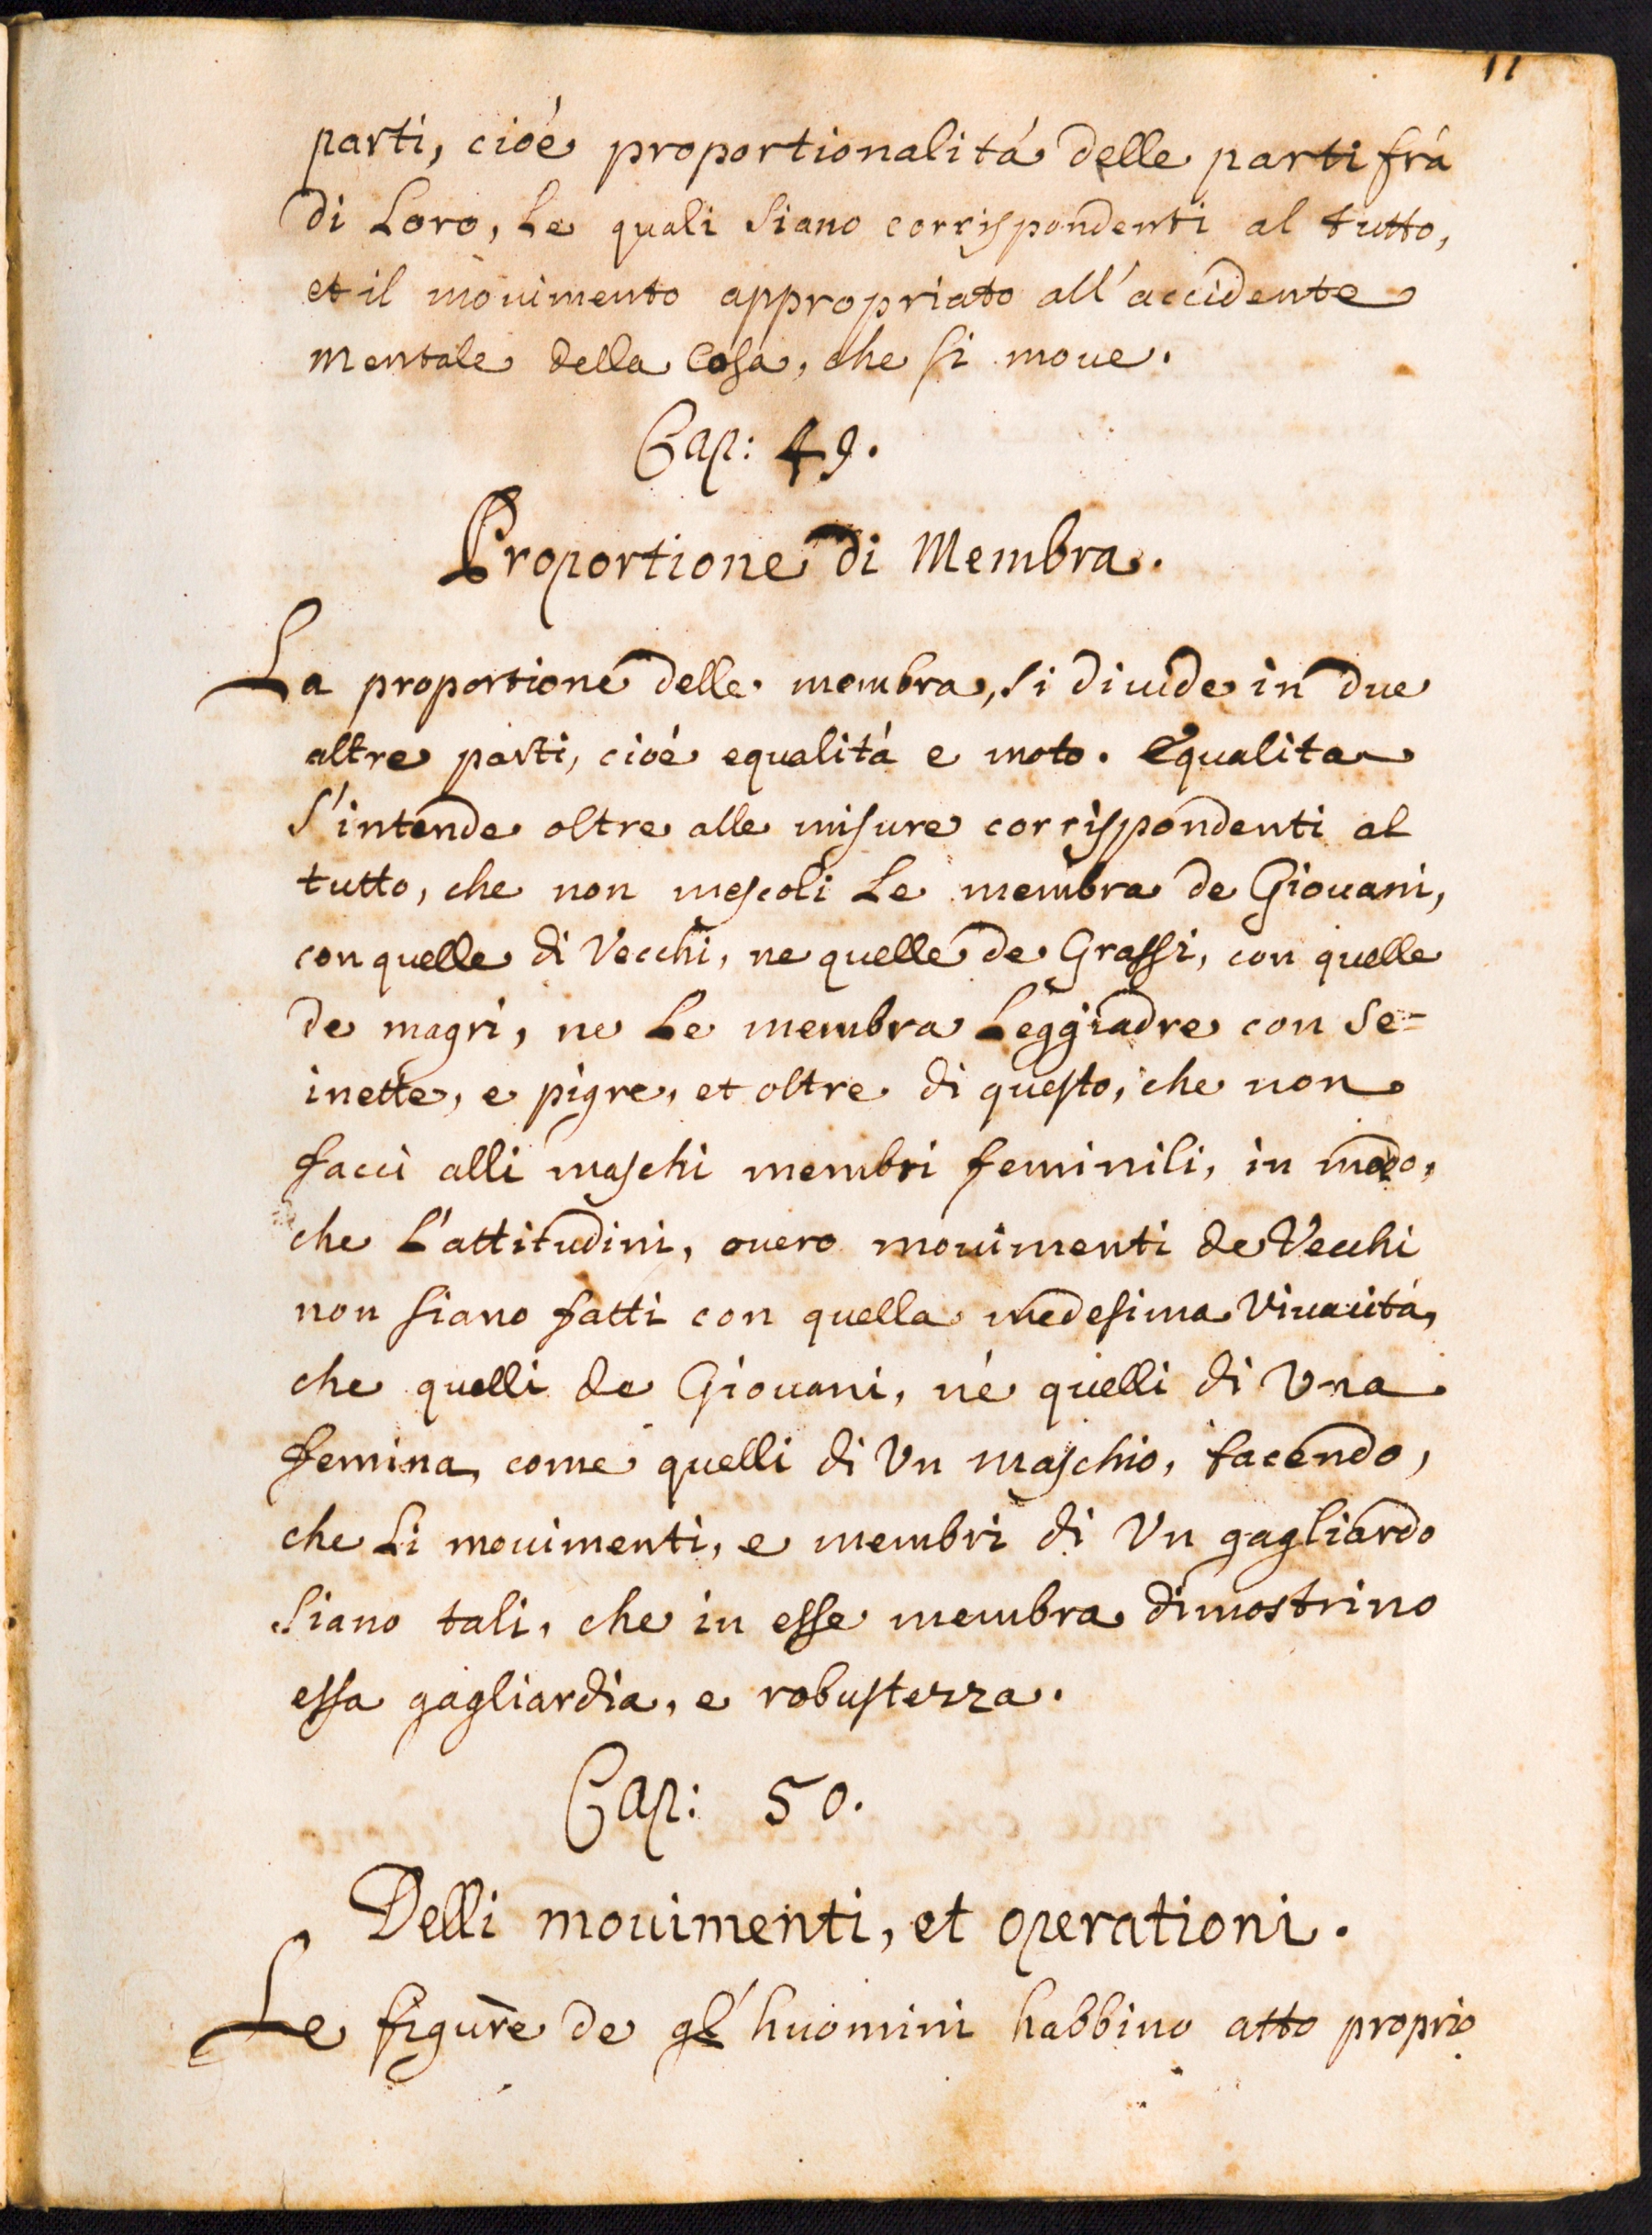 11
parti, cioé proportionalitá delle parti frá
di Loro, Le quali siano corrispondenti al tutto,
et il mouimento appropriato all'accidente
mentale della Cosa, che si moue.
Cap: 49.
Proportione di Membra.
La proportione delle membra, si diuide in due
altre parti, cioé equalitá e moto. equalita
s'intende oltre alle misure corrispondenti al
tutto, che non mescoli Le membra de Giouani,
con quelle di Vecchi, ne quelle de Grassi, con quelle
de magri, ne Le membra Leggiadre con se=
inette, e pigre, et oltre di questo, che non
facci alli maschi membri feminili, in modo,
che L'attitudini, ouero mouimenti de Vecchi
non siano fatti con quella medesima Viuacitá,
che quelli de Giouani, né quelli di Vna
femina, come quelli di Vn maschio, facendo,
che Li mouimenti, e membri di Vn gagliardo
siano tali, che in esse membra dimostrino
essa gagliardia, e robustezza.
Cap: 50.
Delli mouimenti, et operationi.
Le figure de gl'huomini habbino atto proprio